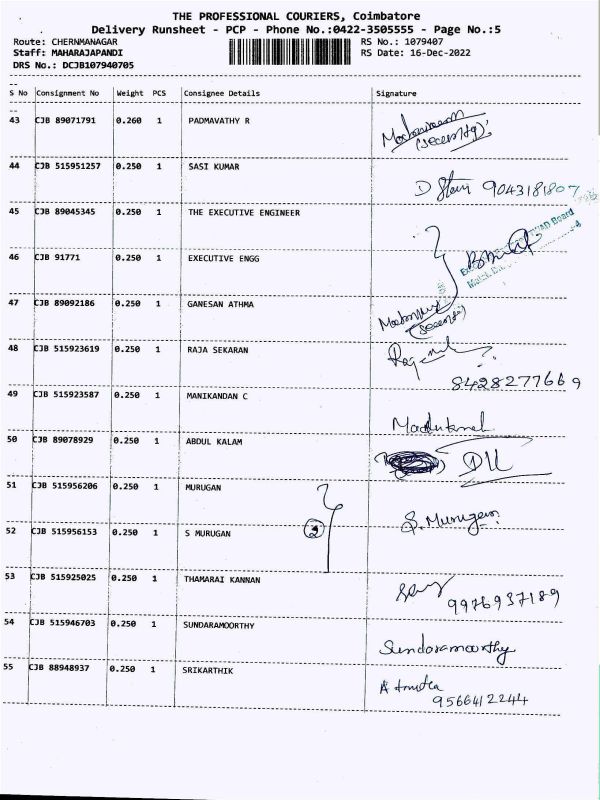 THE PROFESSIONAL COURIERS, Coimbatore
Delivery Runsheet - PCP - Phone No.:0422-3505555 - Page No.:5
Route: CHERNMANAGAR RS No.: 1079407
Staff: MAHARAJAPANDI RS Date: 16-Dec-2022
DRS No.: DCJB107940705
S No Consignment No Weight PCS Consignee Details Signature
43 CJB 89071791 0.260 1 PADMAVATHY R
(security)
44 CJB 515951257 0.250 1 SASI KUMAR
9043181807
45 CJB 89045345 0.250 1 THE EXECUTIVE ENGINEER
TWAD Board
46 CJB 91771 0.250 1 EXECUTIVE ENGG
47 CJB 89092186 0.250 1 GANESAN ATHMA
(security)
48 CJB 515923619 0.250 1 RAJA SEKARAN
8428277669
49 CJB 515923587 0.250 1 MANIKANDAN C
50 CJB 89078929 0.250 1 ABDUL KALAM
51 CJB 515956206 0.250 1 MURUGAN
2 S. Murugan
52 CJB 515956153 0.250 1 S MURUGAN
53 CJB 515925025 0.250 1 THAMARAI KANNAN
9976937189
54 CJB 515946703 0.250 1 SUNDARAMOORTHY
Sundaramoorthy
55 CJB 88948937 0.250 1 SRIKARTHIK
9566412244